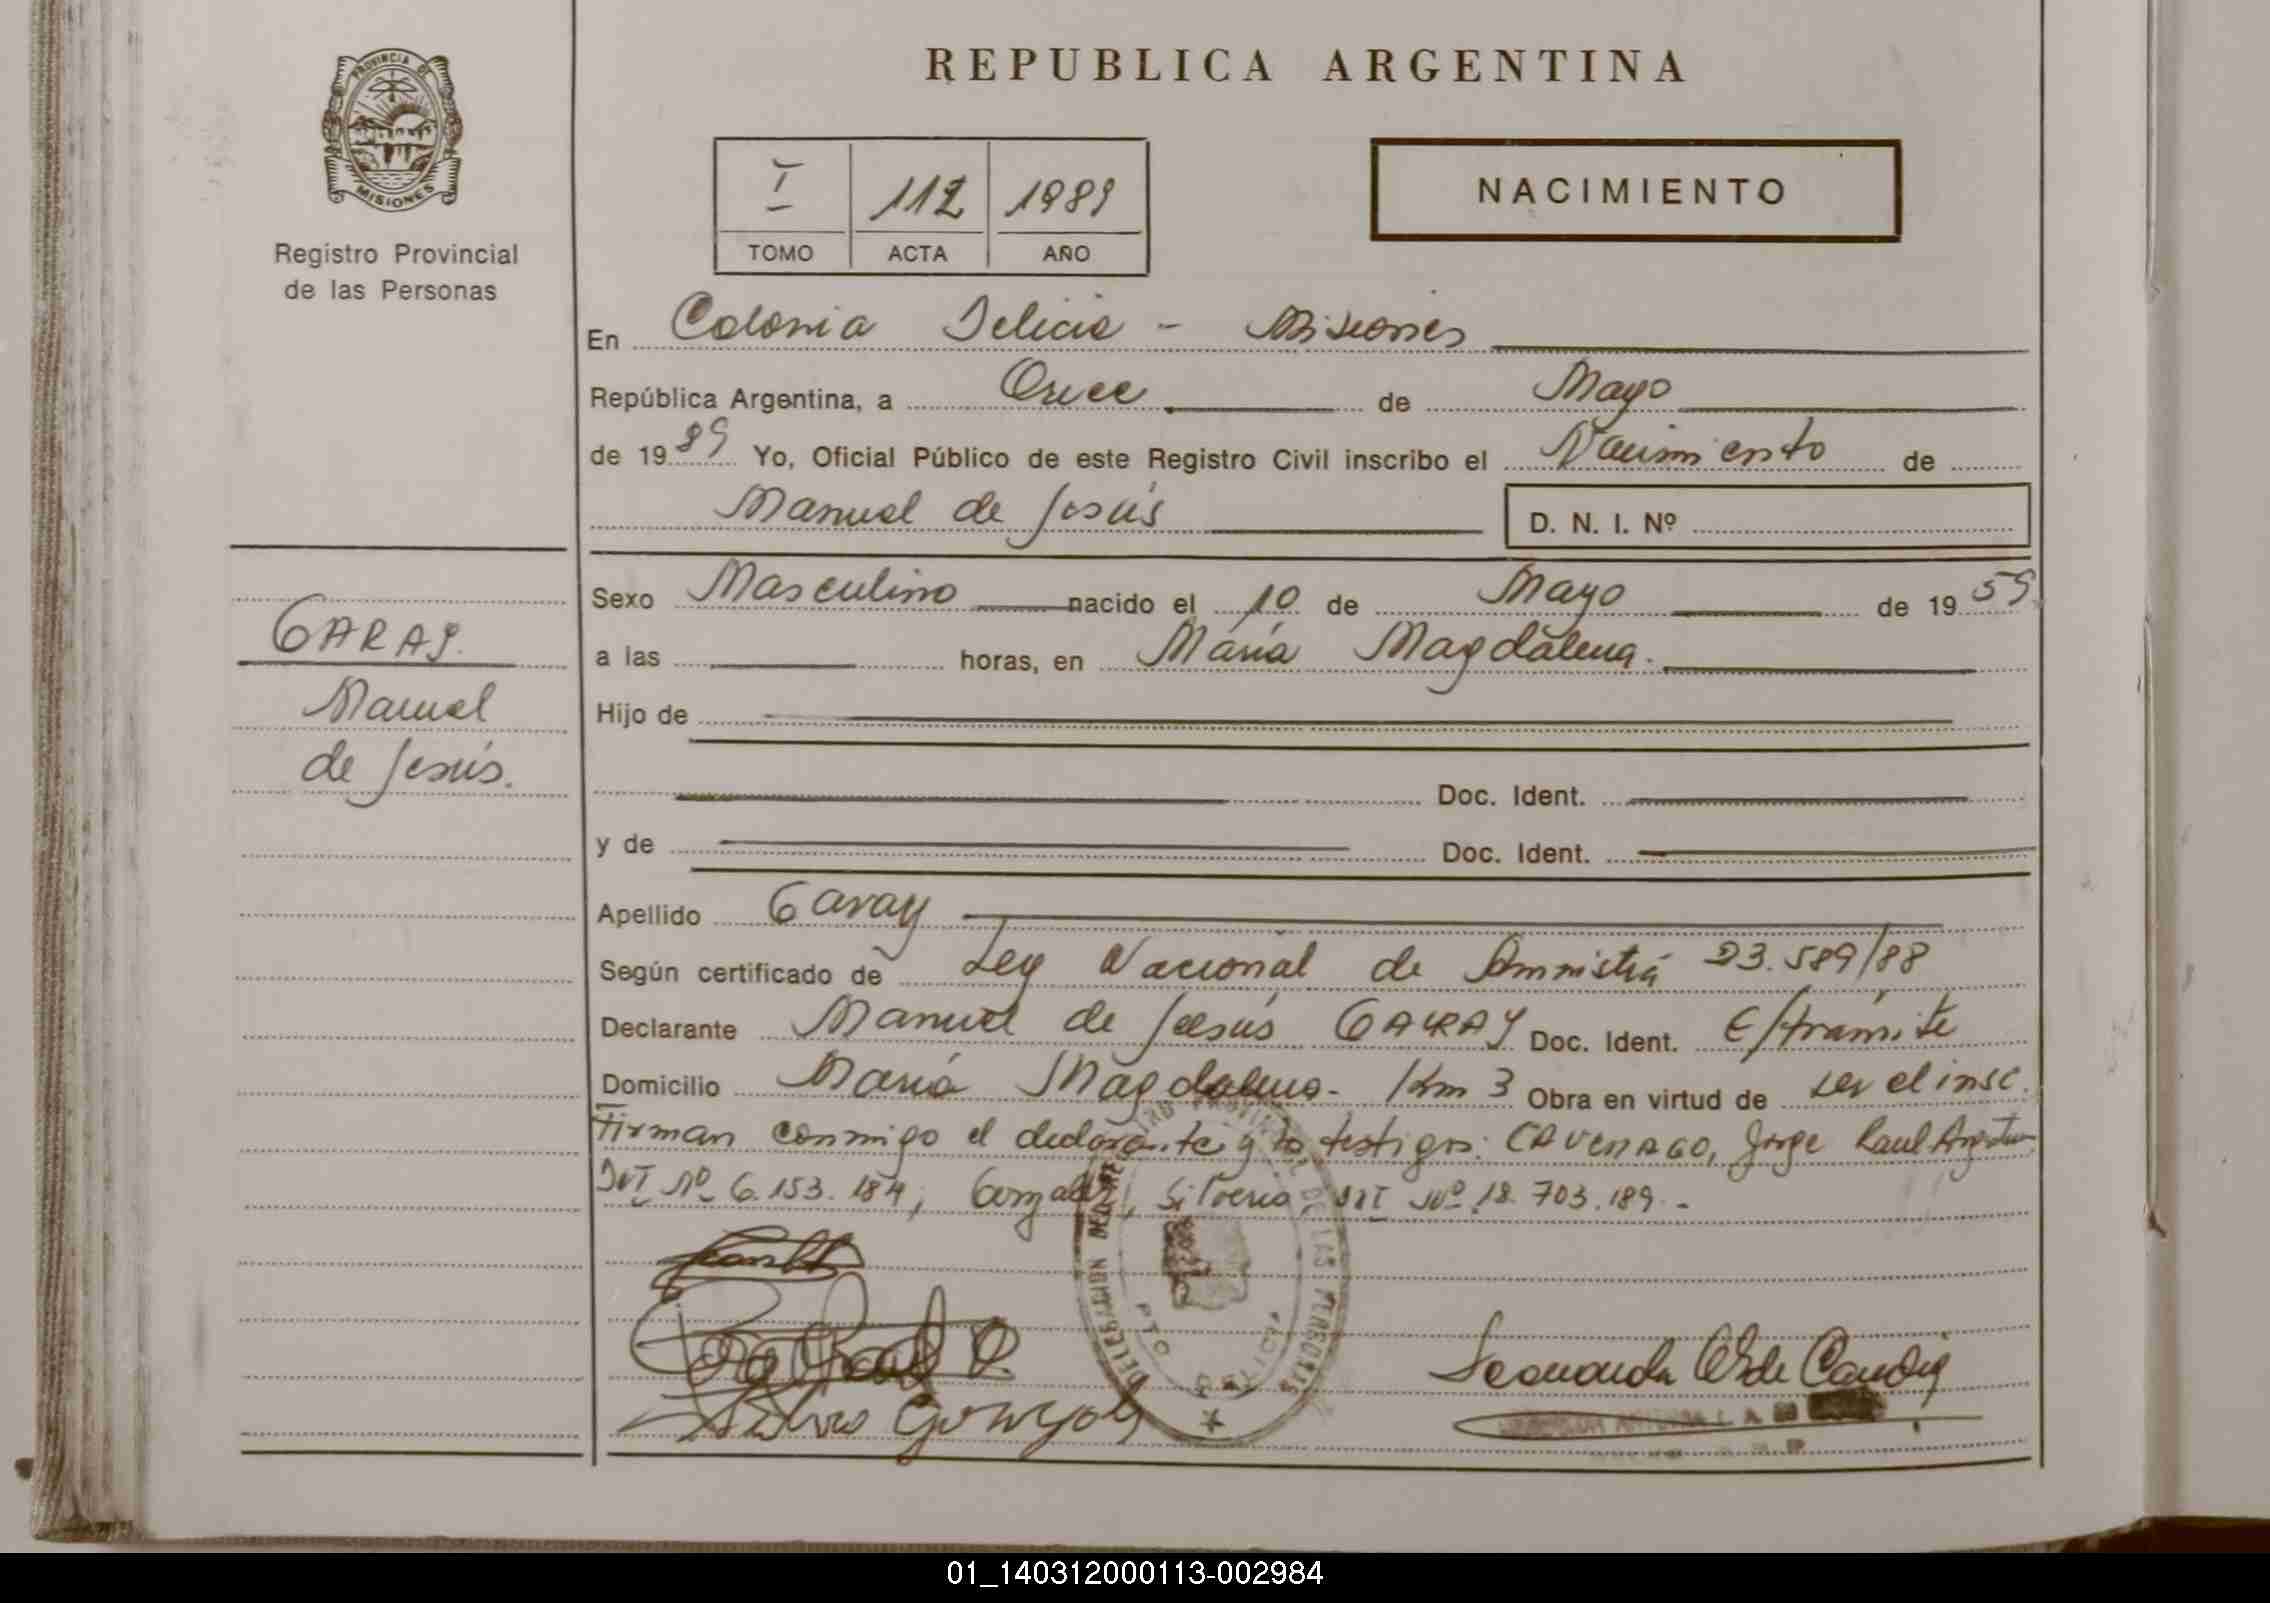 REPUBLICA ARGENTINA
PROVINCIA DE
MISIONES
Registro Provincial
de las Personas
I 112 1989
TOMO ACTA AÑO
NACIMIENTO
En Colonia Delicia - Misiones
República Argentina, a Once de Mayo
de 1989 Yo, Oficial Público de este Registro Civil inscribo el Nacimiento de
Manuel de Jesús D. N. I. Nº
GARAY.
Manuel
de Jesús.
Sexo Masculino nacido el 10 de Mayo de 1959
a las horas, en María Magdalena.
Hijo de
Doc. Ident.
y de Doc. Ident.
Apellido Garay
Según certificado de Ley Nacional de Amnistía 23.589/88
Declarante Manuel de Jesús GARAY Doc. Ident. E/trámite
Domicilio María Magdalena - Km 3 Obra en virtud de ser el insc.
Firman conmigo el declarante y los testigos: CAVENAGO, Jorge Raul
DNI Nº 6.153.184; Gonzalez, Silverio, DNI Nº 18.703.189.-
DELEGACION
DE LAS PERSONAS
PTO